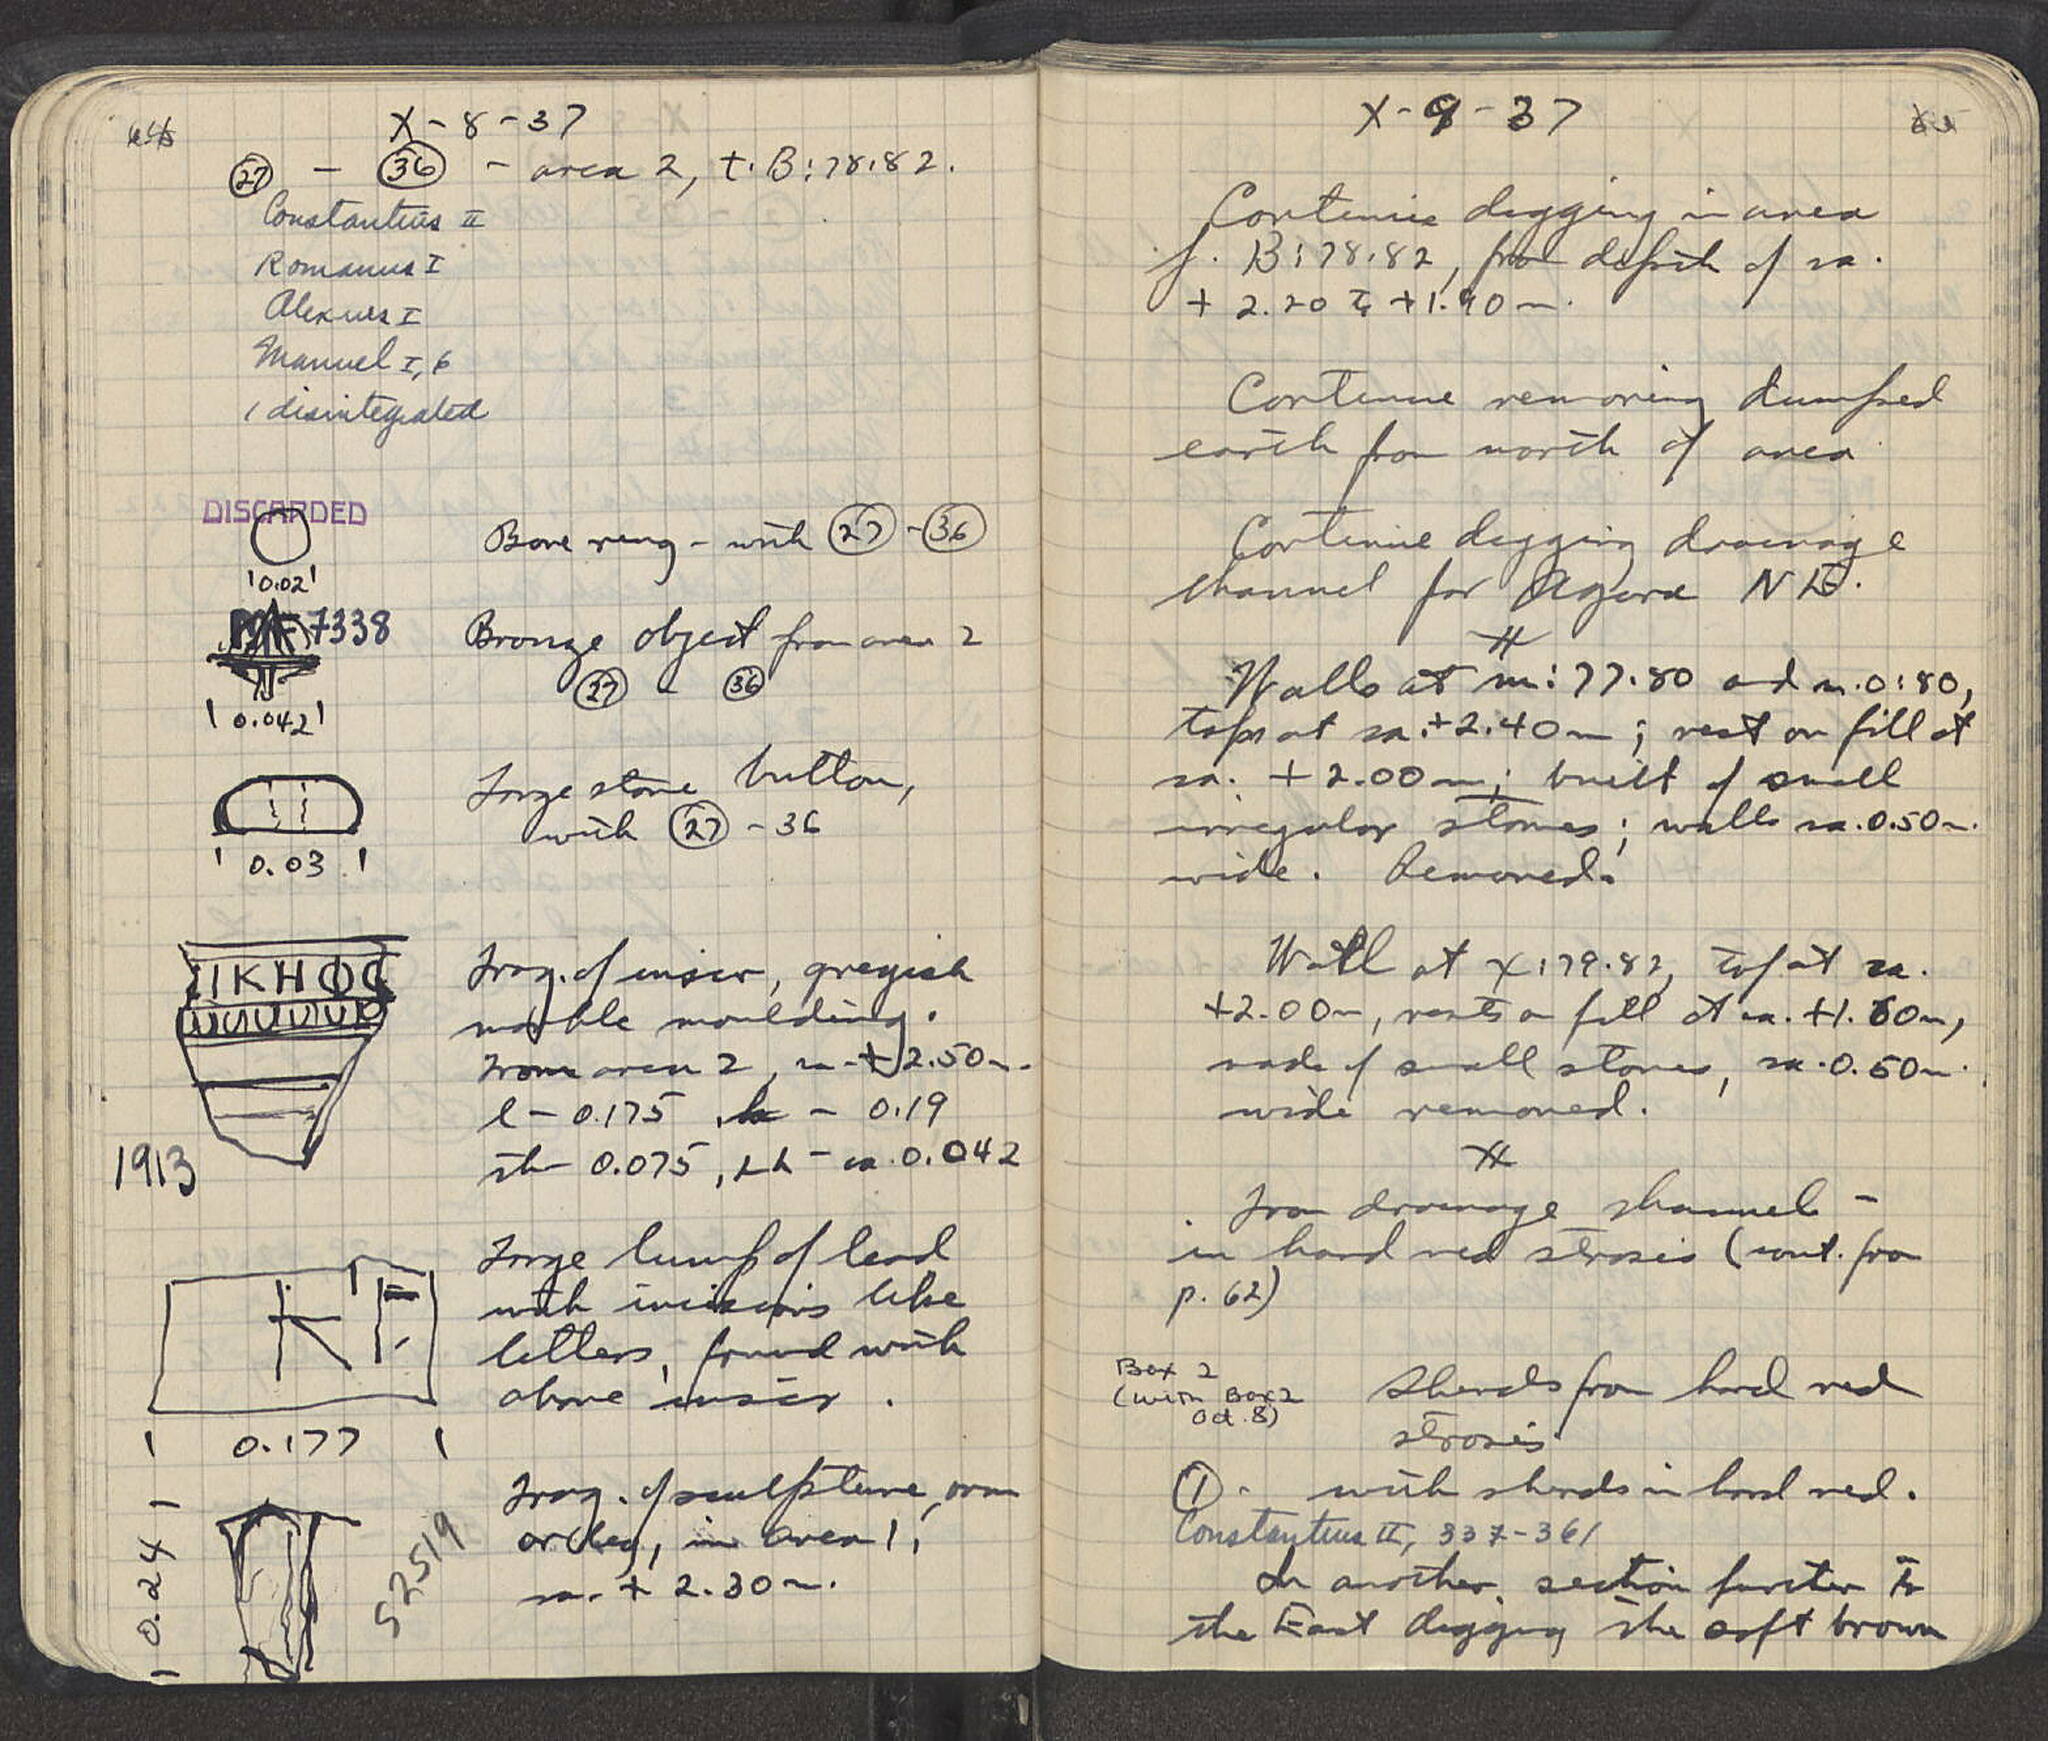 X-8-37
27 - 36 - area 2, t. B:78.82.
Constantius II
Romanus I
Alexius I
Manuel I, 6
1 disintegrated
DISCARDED
0.02
Bone ring - with 27 - 36
7338
Bronze object from area 2
27 - 36
0.042
Large stone button,
with 27 - 36
0.03
ΙΚΗΦΟ
Frag. of inscr, greyish
marble moulding.
From area 2, ca. +2.50m.
l - 0.175, h - 0.19
th 0.075, Lh - ca. 0.042
1913
Large lump of lead
with incisions like
letters, found with
above inscr.
K E
0.177
Frag. of sculpture, arm
or leg, in area 1,
ca. + 2.30m.
0.24
S2519
X-9-37
Continue digging in area
f. B:78.82, from depth of ca.
+ 2.20 to +1.90m.
Continue removing dumped
earth from north of area
Continue digging drainage
channel for Agora NE.
Walls at m:77.80 and n.o:80,
tops at ca. +2.40m; rest on fill at
ca. +2.00m; built of small
irregular stones; walls ca. 0.50m.
wide. Removed.
Wall at X:79.82, top at ca.
+2.00m, rests on fill at ca. +1.60m,
made of small stones, ca. 0.50m.
wide removed.
From drainage channel -
in hard red strosis (cont. from
p. 62)
Box 2
(with Box 2
Oct. 8)
Sherds from hard red
strosis.
1. with sherds in hard red.
Constantius II, 337-361
In another section further to
the East digging the soft brown